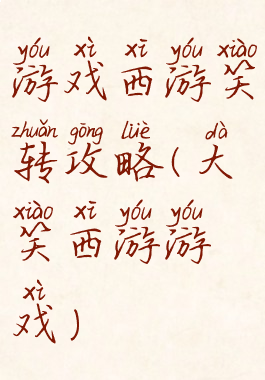 yóu xì xī yóu xiào
游戏西游笑
zhuǎn gōng lüè dà
转攻略(大
xiào xī yóu yóu
笑西游游
xì
戏)